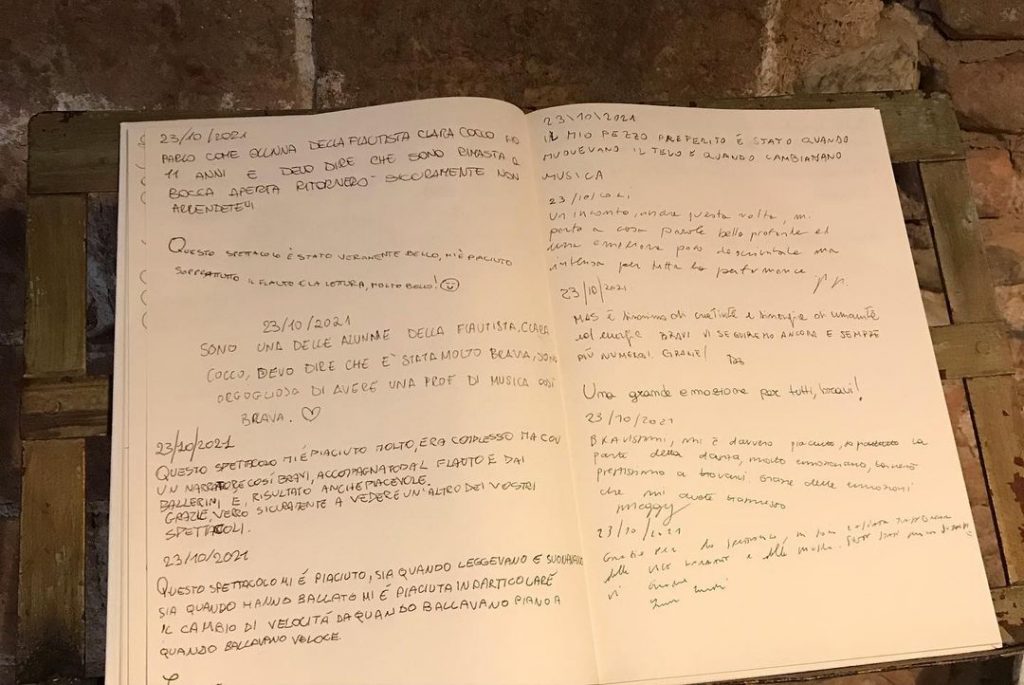 23/10/2021
PARLO COME ALUNNA DELLA FLAUTISTA CLARA COCCO HO
11 ANNI E DEVO DIRE CHE SONO RIMASTA A
BOCCA APERTA RITORNERO SICURAMENTE NON
ARRENDETEVI
QUESTO SPETTACOLO É STATO VERAMENTE BELLO, MI É PIACIUTO
SOPRATTUTO IL FLAUTO E LA LETTURA, MOLTO BELLO!
23/10/2021
SONO UNA DELLE ALUNNE DELLA FLAUTISTA CLARA
COCCO, DEVO DIRE CHE E' STATA MOLTO BRAVA, SONO
ORGOGLIOSA DI AVERE UNA PROF DI MUSICA COSÍ
BRAVA. ♡
23/10/2021
QUESTO SPETTACOLO MI É PIACIUTO MOLTO, ERA COMPLESSO MA CON
UN NARRATORE COSÍ BRAVI, ACCOMPAGNATO DAL FLAUTO E DAI
BALLERINI, E RISULTATO ANCHE PIACEVOLE.
GRAZIE, VERRO SICURAMENTE A VEDERE UN'ALTRO DEI VOSTRI
SPETTACOLI.
23/10/2021
QUESTO SPETTACOLO MI É PIACIUTO, SIA QUANDO LEGGEVANO E SUONAVANO
SIA QUANDO HANNO BALLATO MI É PIACIUTA IN PARTICOLARE
IL CAMBIO DI VELOCITÁ DA QUANDO BALLAVANO PIANO A
QUANDO BALLAVANO VELOCE
23\10\2021
IL MIO PEZZO PREFERITO É STATO QUANDO
MUOVEVANO IL TELO E QUANDO CAMBIAVANO
MUSICA
23/10/2021
Un incontro, anche questa volta, mi
porta a casa parole belle profonde ed
una emozione poro descrivibile ma
intensa per tutta la performance
23/10/2021
MAS é sinonimo di creatività e sinergia di umanità
ed energia BRAVI VI SEGUIREMO ANCORA E SEMPRE
PIÙ NUMEROSI. GRAZIE!
Una grande emozione per tutti, bravi!
23/10/2021
BRAVISSIMI, mi è davvero piaciuto, soprattutto la
parte della danza, molto emozionante, tornerò
prestissimo a trovarvi. Grazie delle emozioni
che mi avete trasmesso
Meggy
23/10/2021
Grazie per lo spettacolo,
delle